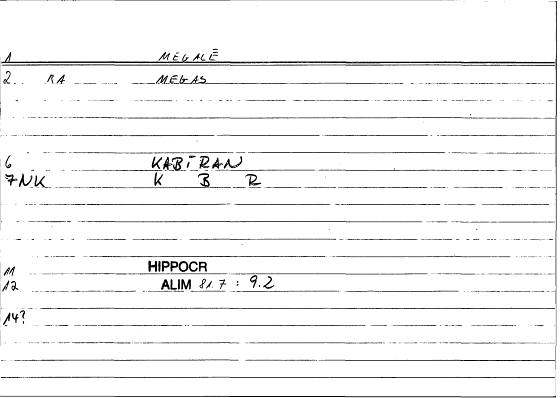 1 MEGALĒ
2 RA MEGAS
6 KABĪRAN
7NK K B R
11 HIPPOCR
12 ALIM 81.7 : 9.2
14?